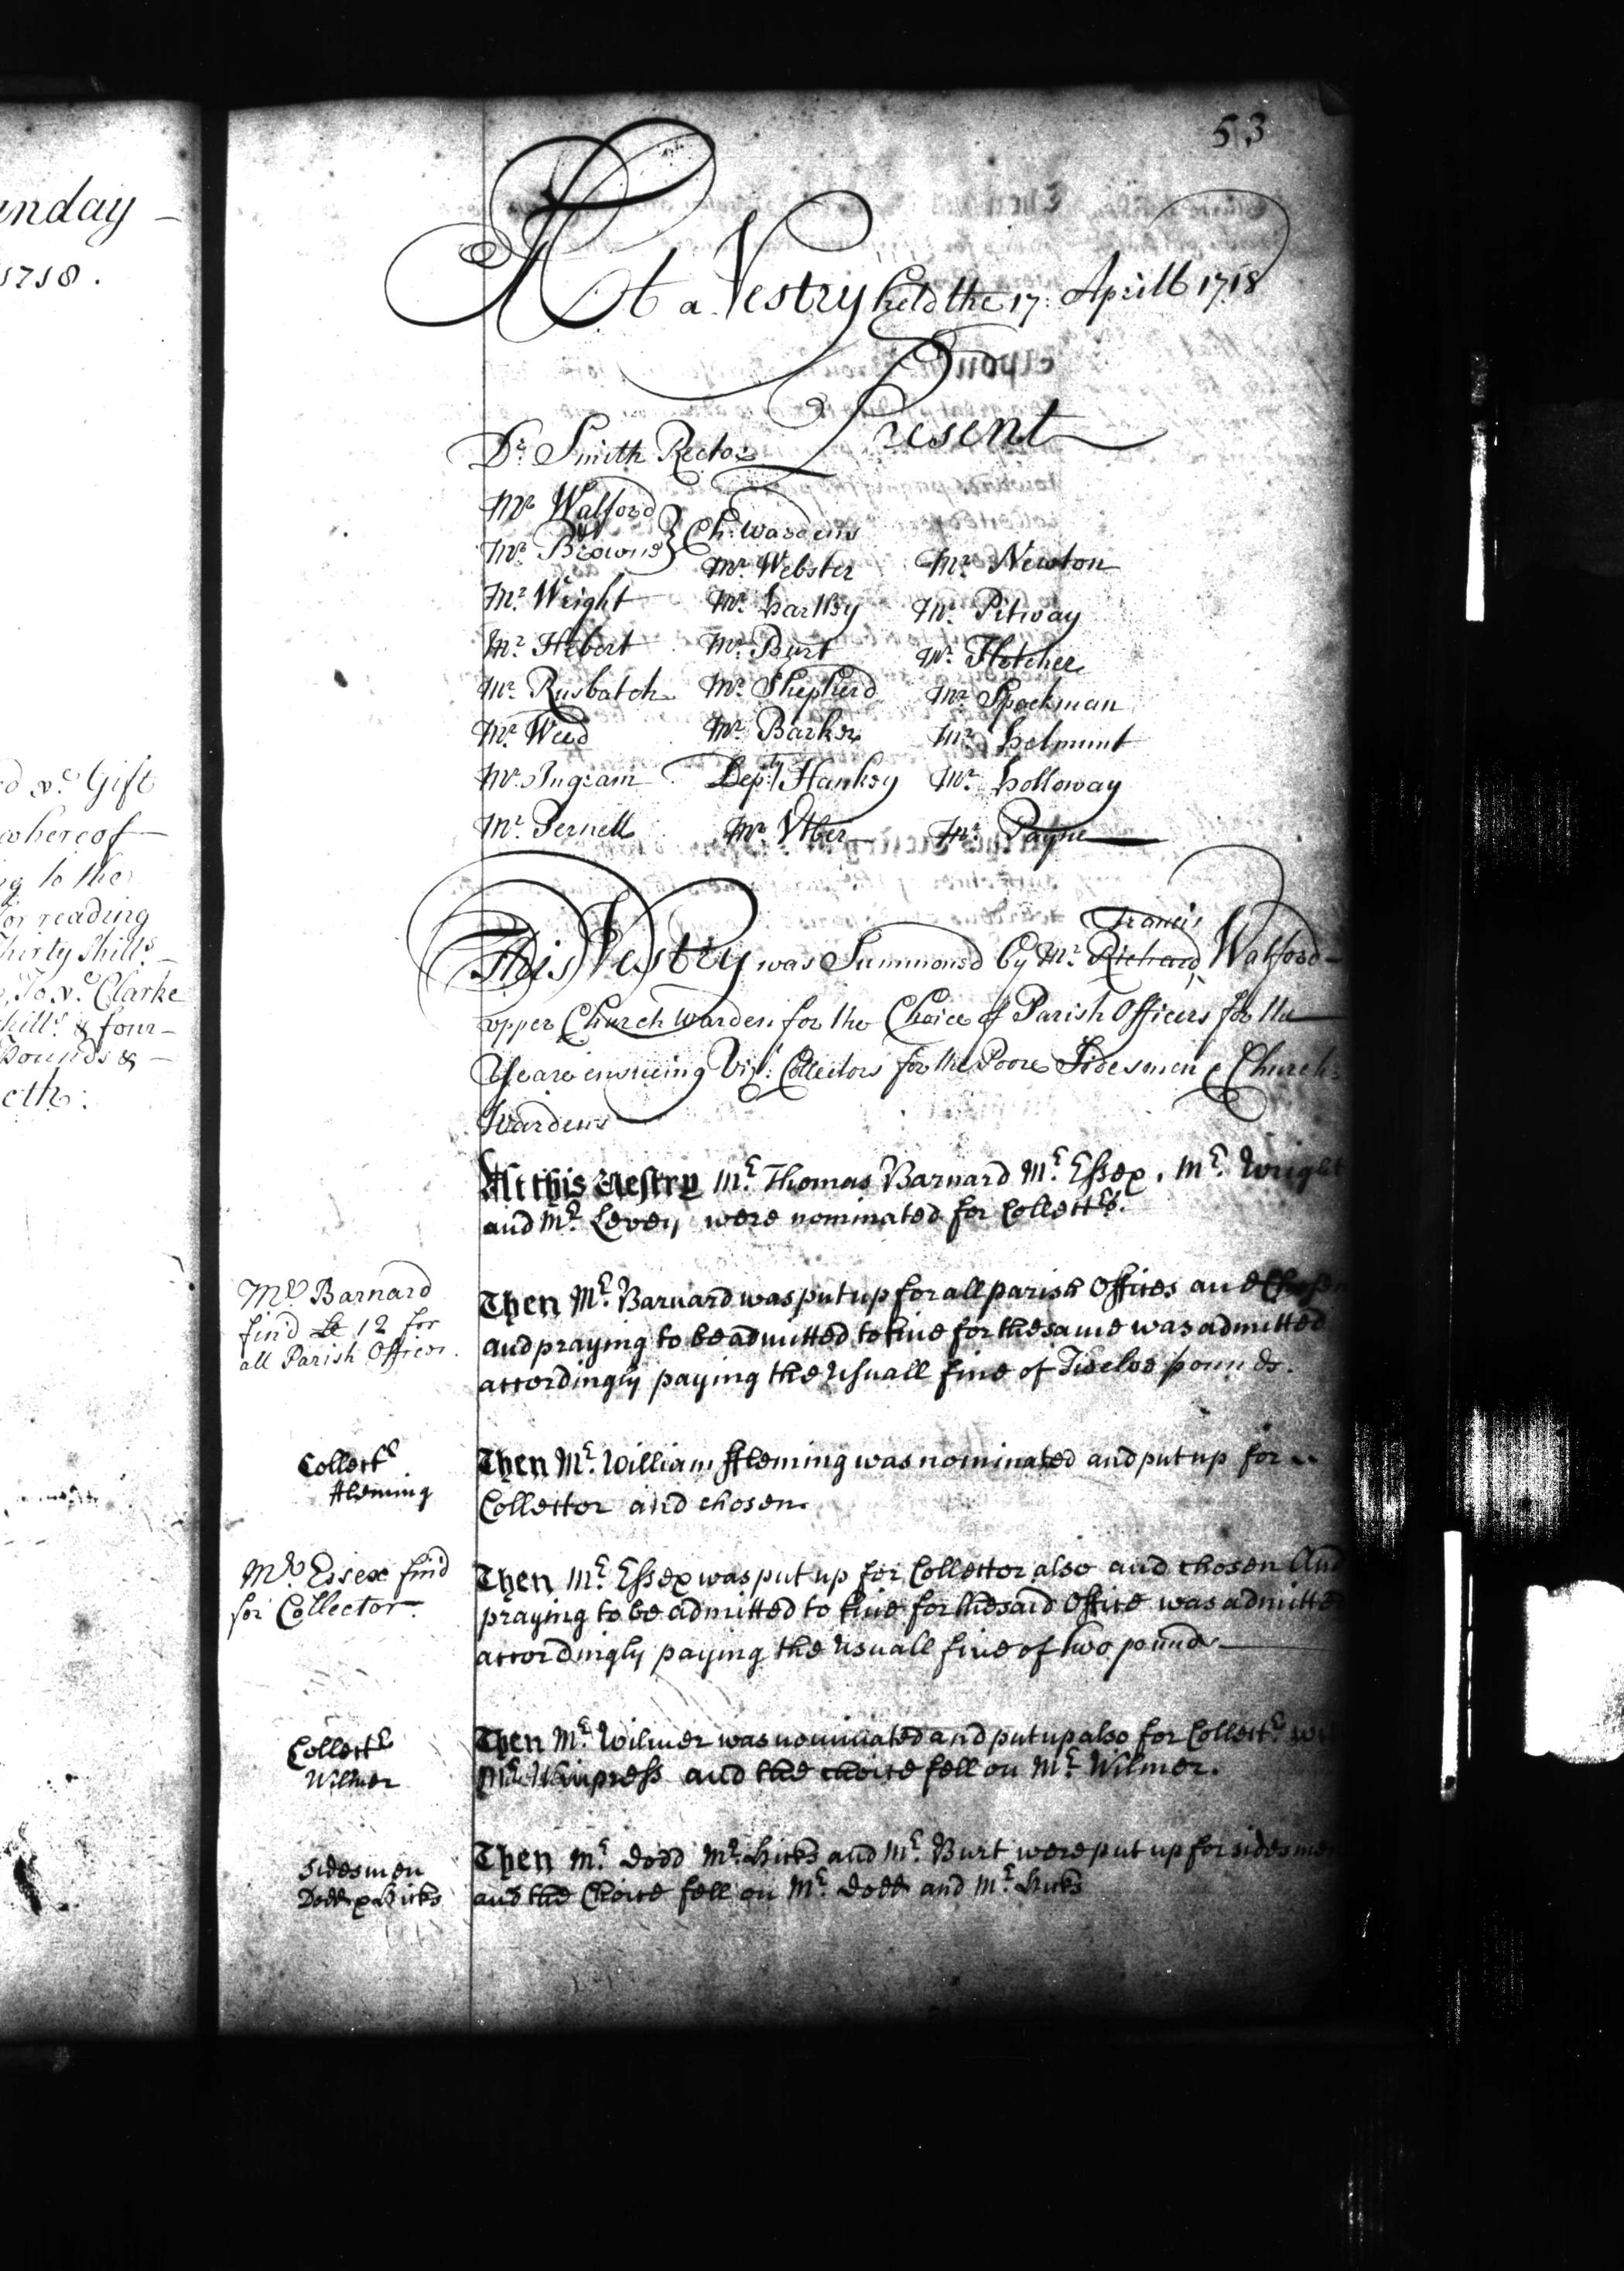 unday
1718.
d ye. Gift
whereof
g to the
for reading
Thirty shills.
To ye. Clarke
shills. & four
Pounds &
eth.
53
At a Vestry held the 17: Aprill 1718
Present
Dr. Smith Rector
Mr Walford
Mr. Browne } Ch: wardens
Mr. Webster Mr. Newton
Mr. Wright Mr. Hartley Mr. Pitway
Mr. Hebert Mr. Burt Mr. Fletcher
Mr. Rusbatch Mr. Shepherd Mr. Spackman
Mr. Weed Mr. Barker Mr. Helmunt
Mr. Ingram Depty. Hankey Mr. Holloway
Mr. Pernell Mr. Uber Mr. Payne
Francis
This Vestry was Summonsd by Mr. Richard Walford
upper Church warden for the Choice of Parish Officers for the
Yeare ensueing Vizt. Collectors for the Poore Sidesmen & Church
Wardens
At this Vestry Mr. Thomas Barnard Mr. Essex, Mr. Wright
and Mr. Levey were nominated for Collectrs.
Mr Barnard
fin'd Le 12 for
all Parish Offices.
Then Mr. Barnard was put up for all parish Offices and Chosen
and praying to be admitted to fine for the same was admitted
accordingly paying the Usuall fine of Twelve pounds.
Collectr
ffleming
Then Mr. William ffleming was nominated and put up for
Collector and chosen.
Mr. Essex fin'd
for Collector.
Then Mr. Essex was put up for Collector also and chosen And
praying to be admitted to fine for the said Office was admitted
accordingly paying the usuall fine of two pounds
Collectr
Wilmer
Then Mr. Wilmer was nominated and put up also for Collectr.
Mr. Wimpress and the choice fell on Mr. Wilmer.
Sidesmen
Dodd & Hicks
Then Mr. Dodd Mr. Hicks and Mr. Burt were put up for sidesmen
and the Choice fell on Mr. Dodd and Mr. Hicks